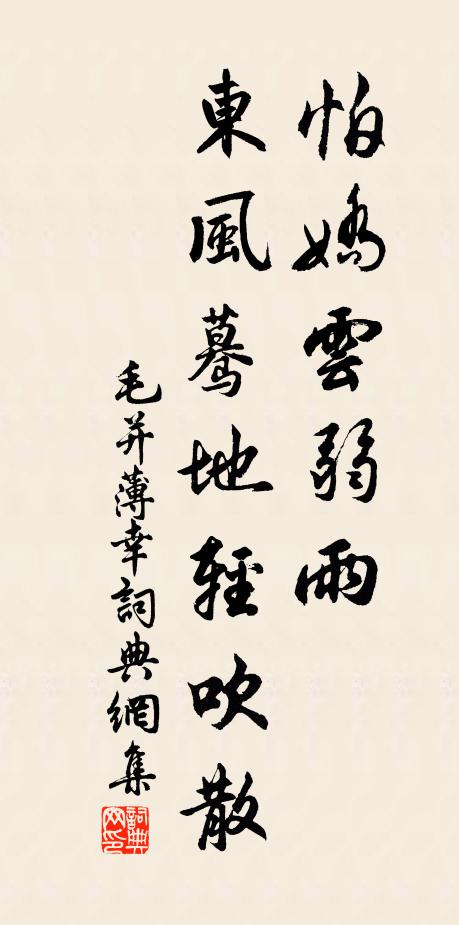 怕嬌雲弱雨
東風驀地輕吹散
毛并薄幸詞典網集
詞典网印